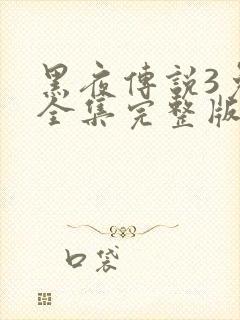 黑夜傳說3
全集完整版
口袋